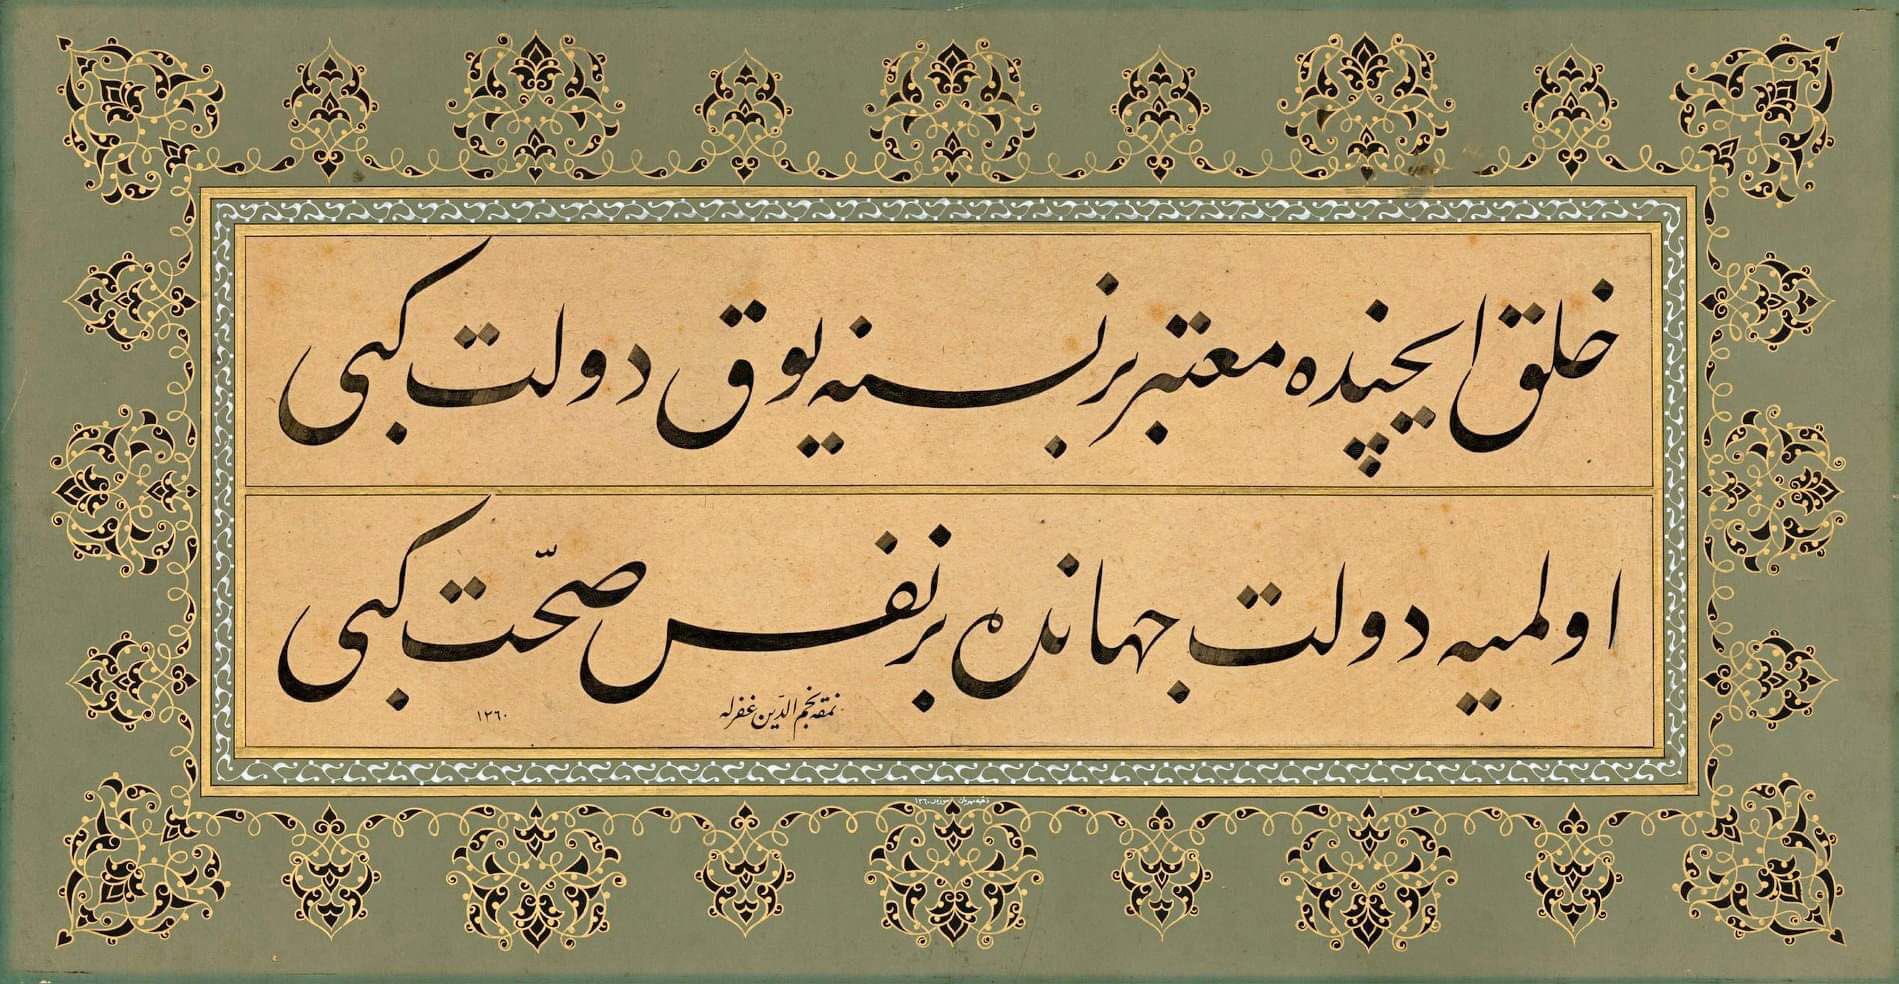 خلق ایچنده معتبر بر نسنه یوق دولت کبی
اولمیه دولت جهانده بر نفس صحّت کبی
نمقه نجم الدّین غفر له
١٣٦٠